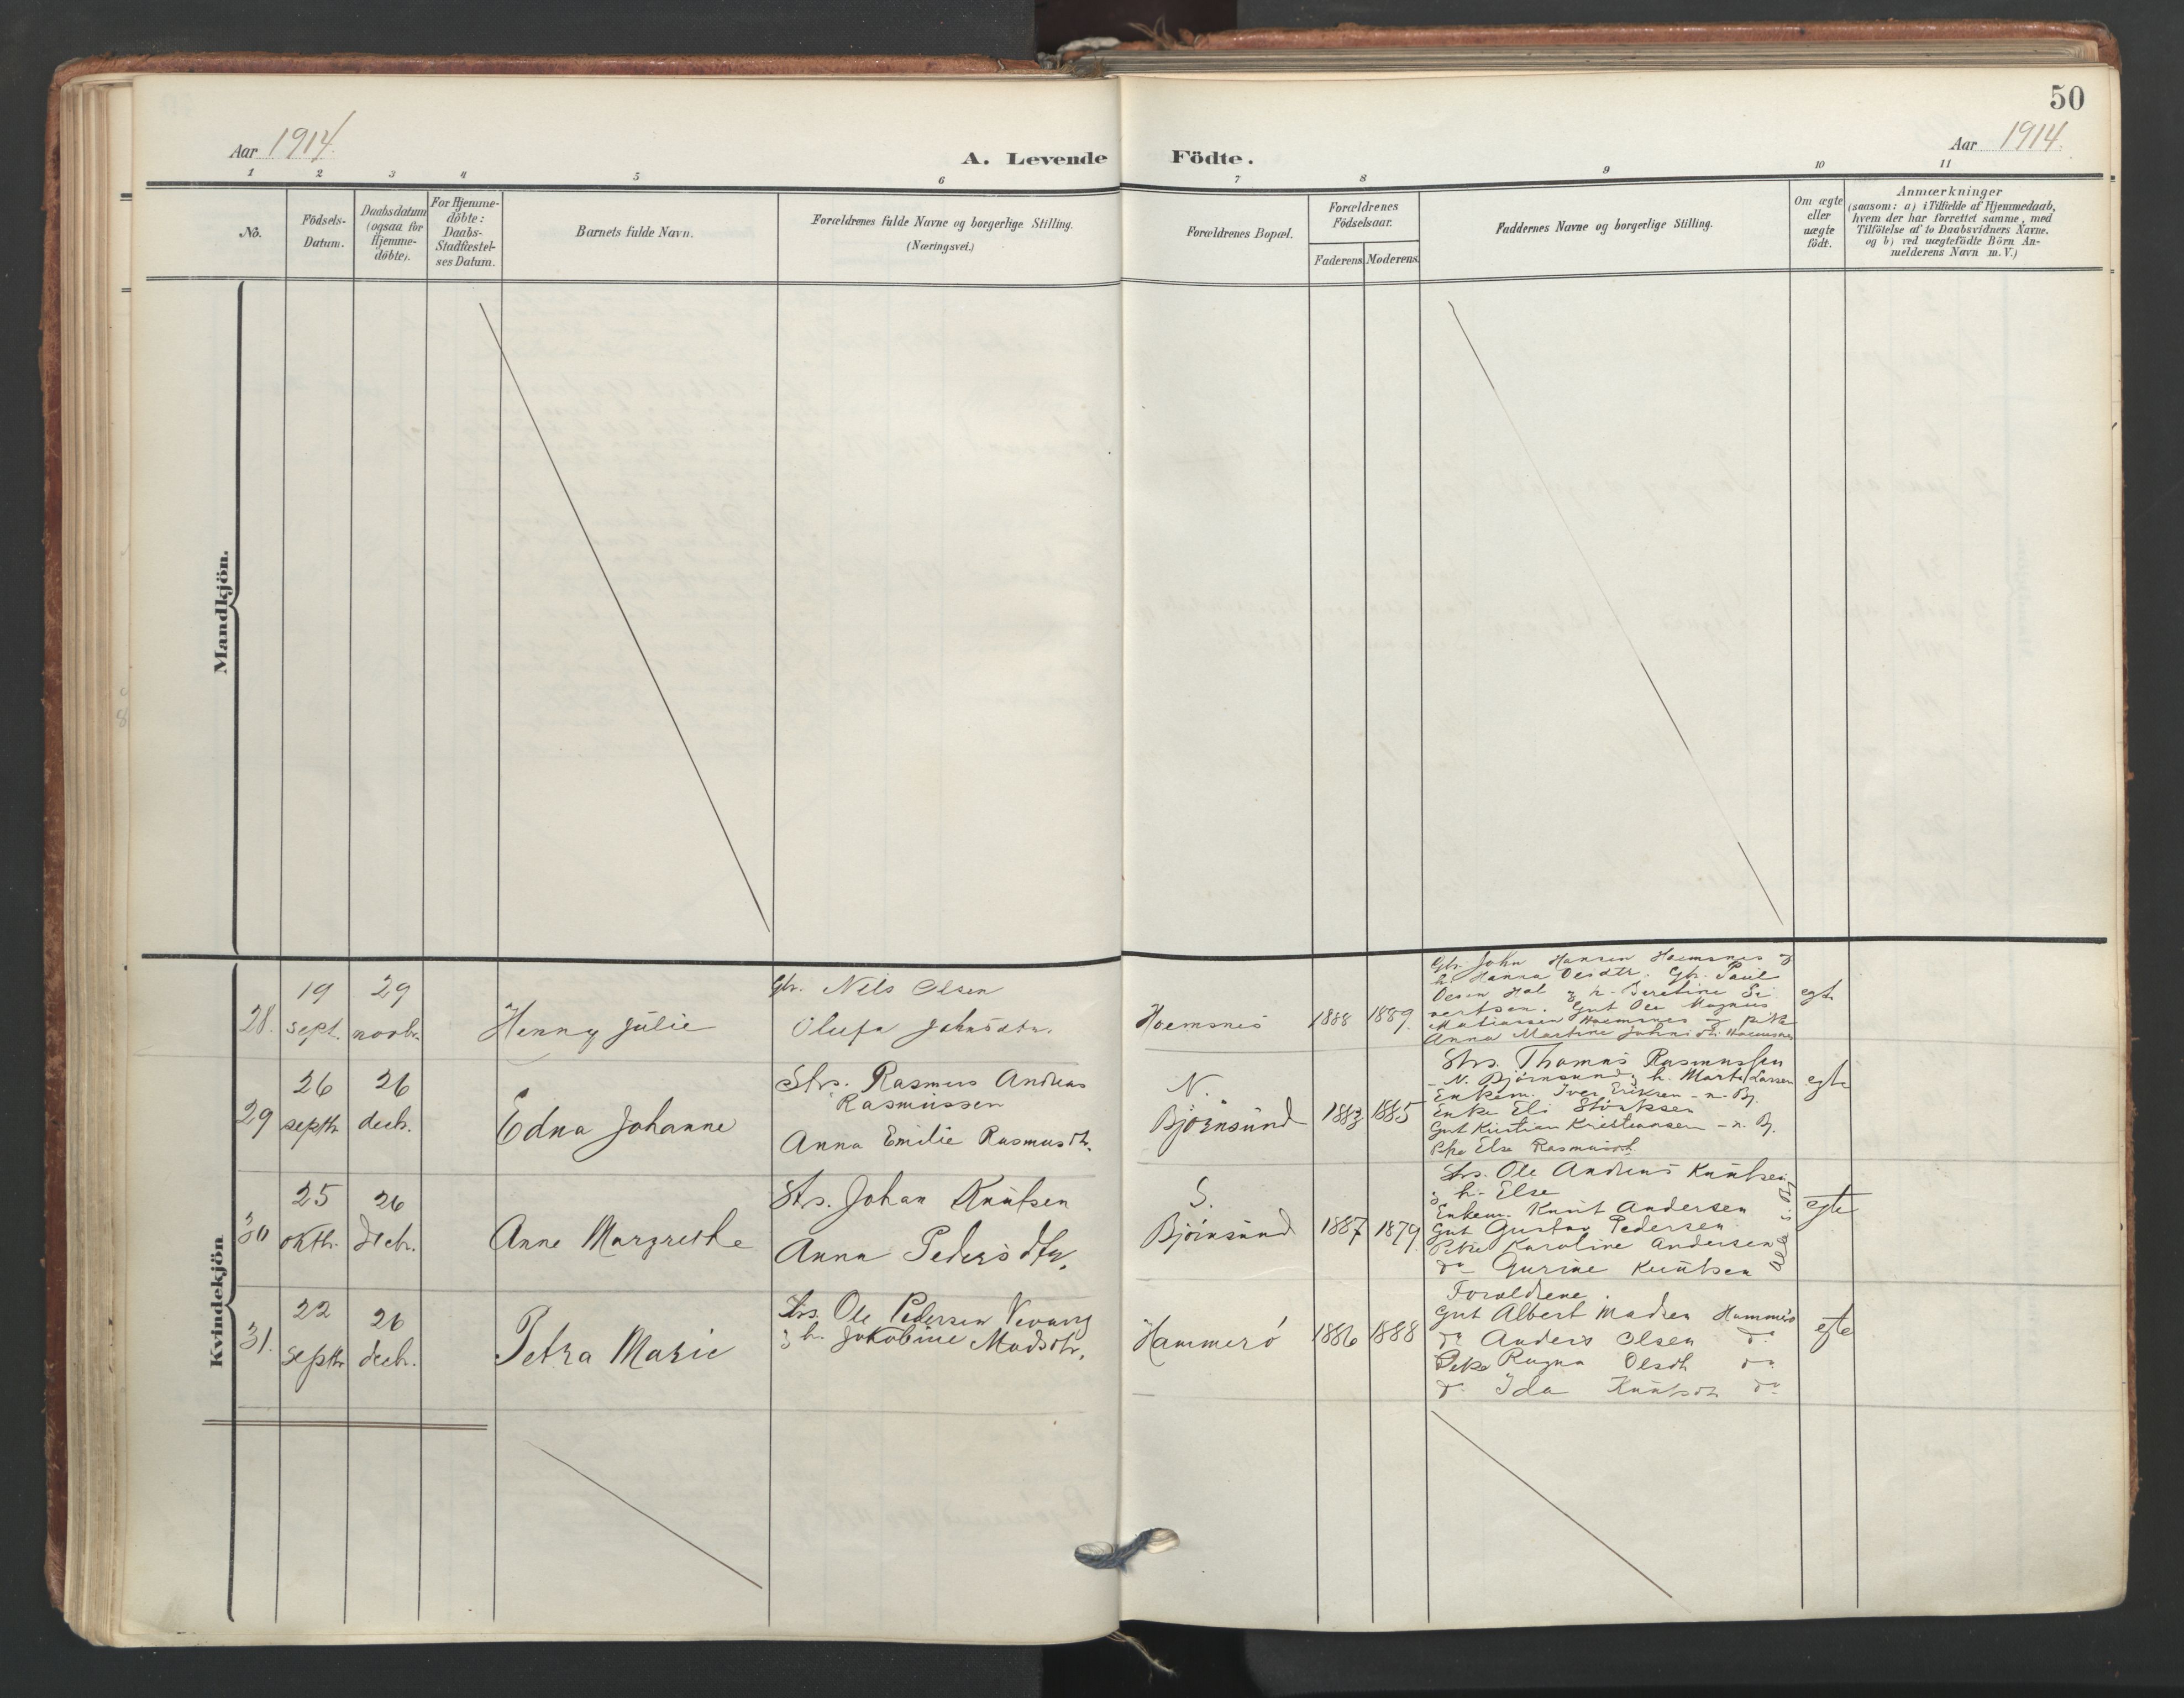 50
Aar 1914.
A. Levende Födte.
Aar 1914.
1 2 3 4 5 6 7 8 9 10 11
No.
Födsels-
Datum.
Daabsdatum
(ogsaa for
Hjemme-
döbte).
For Hjemme-
döbte:
Daabs-
Stadfæstel-
ses Datum.
Barnets fulde Navn.
Forældrenes fulde Navne og borgerlige Stilling.
(Næringsvei.)
Forældrenes Bopæl.
Forældrenes
Födselsaar.
Faderens. Moderens.
Faddernes Navne og borgerlige Stilling.
Om ægte
eller
uægte
födt.
Anmærkninger
(saasom: a) i Tilfælde af Hjemmedaab,
hvem der har forrettet samme, med
Tilföielse af to Daabsvidners Navne.
og b) ved uægtefödte Börn An-
melderens Navn m. V.)
Mandkjön.
Kvindekjön
28.
19
sept.
29
novbr.
Henny Julie
Gbr. Nils Olsen
Olufa Johnsdtr.
Hoemsnes
1888 1889.
Gbr. John Hansen Hoemsnes og
h. Hanna Olsdtr. Gbr. Paul
Olsen Hol og h.
vertsen. Gut Ole Magnus
Matiassen Hoemsnes og pike
Anna Martine Johnsdtr. Hoemsnes
egte
29
26
septbr.
26
decb.
Edna Johanne
Strs. Rasmus Andreas
Rasmussen
Anna Emilie Rasmusdtr.
N.
Björnsund
1883 1885
Strs. Thomas Rasmussen
N. Björnsund, h. Marta Larsen
Enkem. Iver Eriksen - n. Bj.
Enke Eli
Gut Kristian Kristiansen - n. Bj.
Pike Else Rasmusdt.
egte
30
25
oktb.
26
decb.
Anne Margrethe
Strs. Johan Knutsen
Anna Pedersdtr.
S.
Björnsund
1887 1879.
Strs. Ole Andreas Knutsen
og h. Else
Enkem. Knut Andersen
Gut Gustav Pedersen
Pike Karoline Andersen
do Gurine Knutsen
Alle s. Bj.
egte
31.
22
septbr
26
decb.
Petra Marie
Strs. Ole Pedersen Vevang
og h. Jakobine Madsdtr.
Hammerö
1886 1888
Foreldrene.
Gut Albert Madsen Hammerö
do Anders Olsen do
Pike Ragna Olsdt do
do Ida Knutsdt do
egte